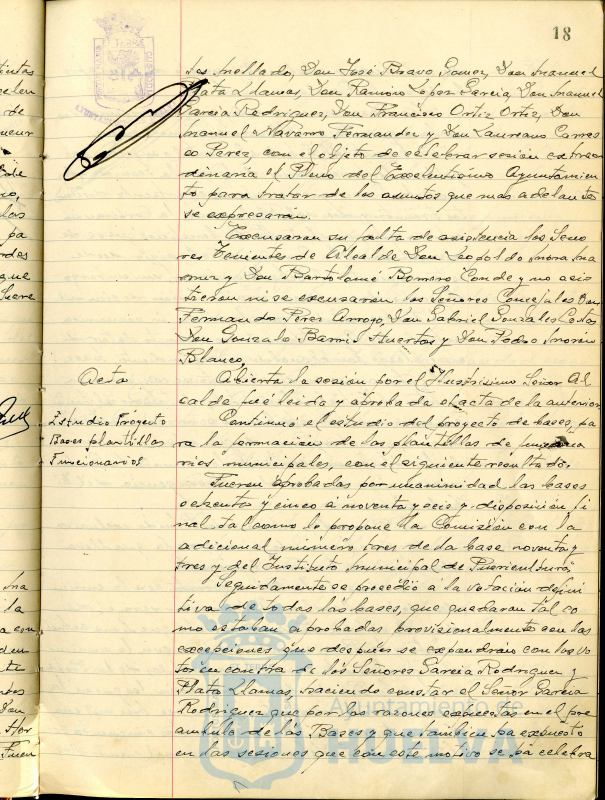 18
tes Mellado, Don José Bravo Gomez, Don Manuel
Plata Llamas, Don Ramón Lopez Garcia, Don Manuel
Garcia Rodriguez, Don Francisco Ortiz Ortiz, Don
Manuel Navarro Fernandez y Don Laureano Carras
co Perez, con el objeto de celebrar sesión extraor
dinaria el Pleno del Excelentisimo Ayuntamien
to para tratar de los asuntos que mas adelante
se expresarán.
Excusaron su falta de asistencia los Seño
res Tenientes de Alcalde Don Leopoldo
y Don Bartolomé Borrero Conde y no asis
tieron ni se excusaron los Señores Concejales Don
Fernando Perez Arroyo, Don Gabriel Gonzalez Costa,
Don Gonzalo Barris Huertas y Don Pedro Moron
Blanco.
Acta
Abierta la sesión por el Ilustrisimo Señor Al
calde fué leida y aprobada el acta de la anterior
Estudio Proyecto
Bases plantillas
Funcionarios
Continuó el estudio del proyecto de bases pa
ra la formación de las plantillas de funciona
rios municipales, con el siguiente resultado.
Fueron aprobadas por unanimidad las bases
ochenta y cinco á noventa y seis y disposición fi
nal tal como lo propone la Comisión con la
adicional número tres de la base noventa y
tres y del Instituto Municipal de Puericultura
Seguidamente se procedió á la votación defini
tiva de todas las bases, que quedaron tal co
mo estaban aprobadas provisionalmente con las
excepciones que después se expondrán con los vo
tos en contra de los Señores Garcia Rodriguez y
Plata Llamas, haciendo constar el Señor Garcia
Rodriguez que por las razones expuestas en el pre
ambulo de las Bases y que tambien ha expuesto
en las sesiones que con este motivo se ha celebra
Ayuntamiento de
HUELVA